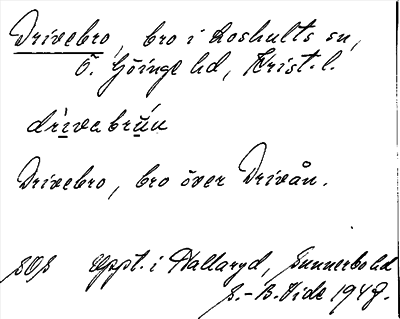 Drivebro, bro i Loshults sn,
Ö. Göinge hd, Krist. l.
drivabrún
Drivebro, bro över Drivån.
SOS Uppt. i Hallaryd, Sunnerbo hd
S.-B. Vide 1948.